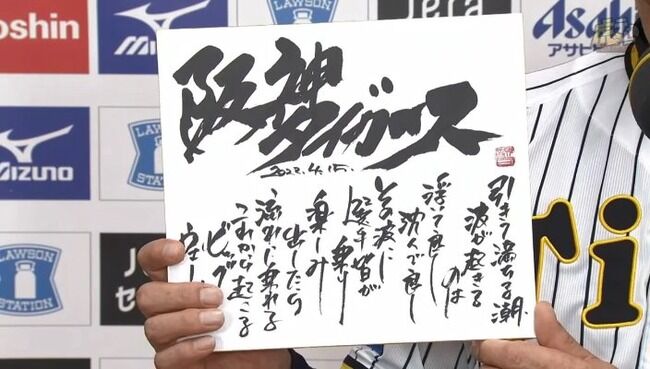 oshin
LAWSON
STATION
Jera
Asahi
アサヒビ
阪神
タイガース
2022.4.15.
引きて満ちる潮
波が起きる
のは
浮いて良し
沈んで良し
その波に
選手皆が
乗り
楽しみ
出したら
流れに乗れる
これから起こる
ビッグ
ウェー
MIZUNO
LAWSON
STATION
LAWSON
STATION
J
セ
ri